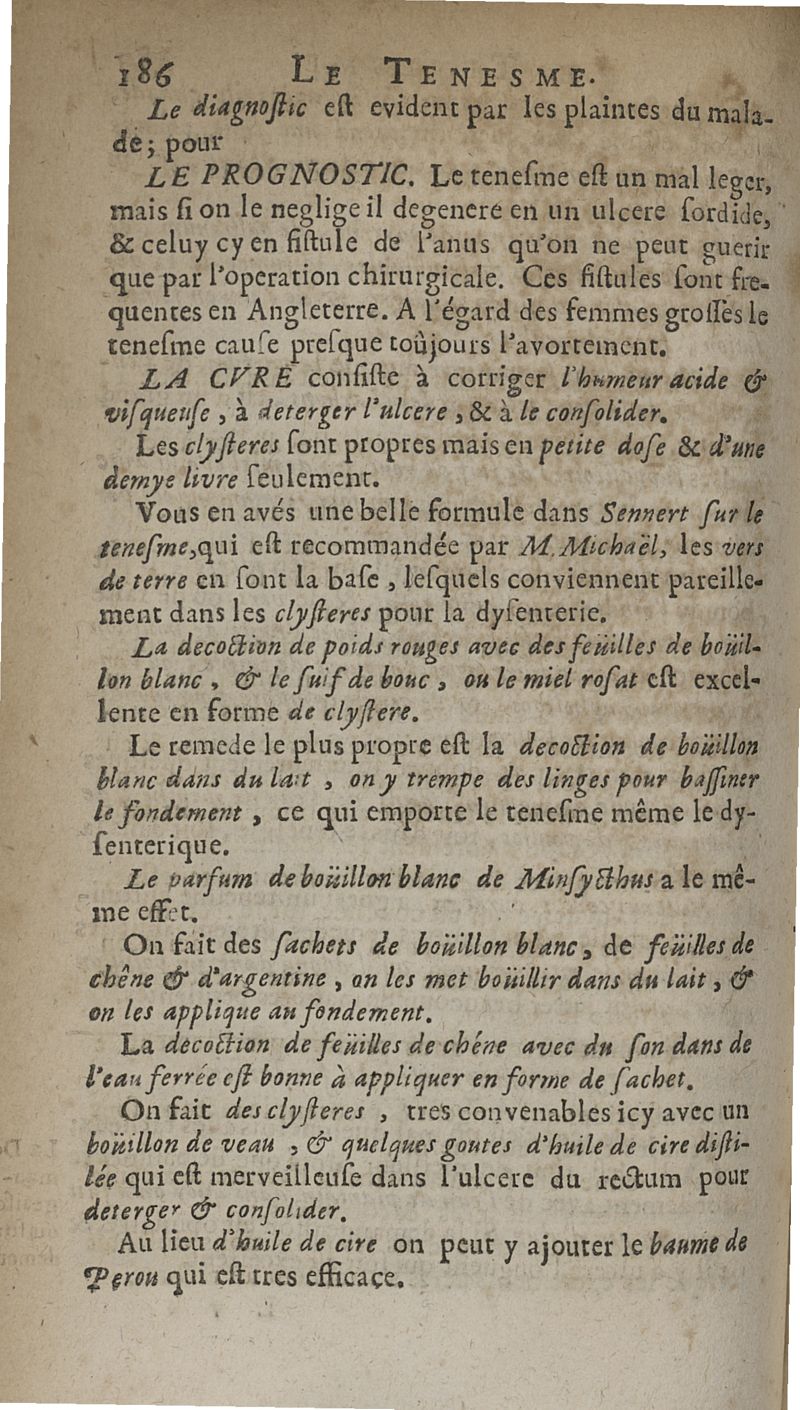 186 LE TENESME.
Le diagnoſtic eſt evident par les plaintes du mala-
de; pour
LE PROGNOSTIC. Le teneſme eſt un mal leger,
mais ſi on le neglige il degenere en un ulcere ſordide,
& celuy cy en fiſtule de l'anus qu'on ne peut guerir
que par l'operation chirurgicale. Ces fiſtules ſont fre-
quentes en Angleterre. A l'égard des femmes groſſes le
teneſme cauſe preſque toûjours l'avortement.
LA CVRE conſiſte à corriger l'humeur acide &
viſqueuſe, à deterger l'ulcere, & à le conſolider.
Les clyſteres ſont propres mais en petite doſe & d'une
demye livre ſeulement.
Vous en avés une belle formule dans Sennert ſur le
teneſme, qui eſt recommandée par M. Michaël, les vers
de terre en ſont la baſe, leſquels conviennent pareille-
ment dans les clyſteres pour la dyſenterie.
La decoction de poids rouges avec des feüilles de boüil-
lon blanc, & le ſuif de bouc, ou le miel roſat eſt excel-
lente en forme de clyſtere.
Le remede le plus propre eſt la decoction de boüillon
blanc dans du lait, on y trempe des linges pour baſſiner
le fondement, ce qui emporte le teneſme même le dy-
ſenterique.
Le parfum de boüillon blanc de Minſycthus a le mê-
me effet.
On fait des ſachets de boüillon blanc, de feüilles de
chêne & d'argentine, on les met boüillir dans du lait, &
on les applique au fondement.
La decoction de feüilles de chéne avec du ſon dans de
l'eau ferrée eſt bonne à appliquer en forme de ſachet.
On fait des clyſteres, tres convenables icy avec un
boüillon de veau, & quelques goutes d'huile de cire diſti-
lée qui eſt merveilleuſe dans l'ulcere du rectum pour
deterger & conſolider.
Au lieu d'huile de cire on peut y ajouter le baume de
Perou qui eſt tres efficace.